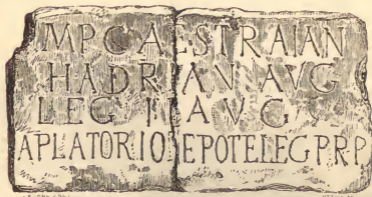 IMP CAES TRAIAN
HADRIANI AVG
LEG II AVG
APLATORIO NEPOTE LEG PR P